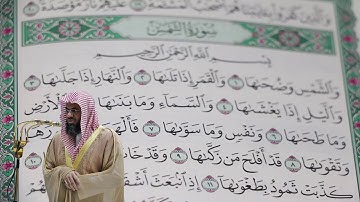 وَالَّذِينَ كَفَرُوا
عَلَيْهِمْ نَارٌ مُّؤْصَدَةٌ ۝٢٠
سُورَةُ الشَّمْسِ
بِسْمِ اللَّهِ الرَّحْمَٰنِ الرَّحِيمِ
وَالشَّمْسِ وَضُحَىٰهَا ۝١ وَالْقَمَرِ إِذَا تَلَىٰهَا ۝٢ وَالنَّهَارِ إِذَا جَلَّىٰهَا ۝٣
وَاللَّيْلِ إِذَا يَغْشَىٰهَا ۝٤ وَالسَّمَاءِ وَمَا بَنَىٰهَا ۝٥ وَالْأَرْضِ
وَمَا طَحَىٰهَا ۝٦ وَنَفْسٍ وَمَا سَوَّىٰهَا ۝٧ فَأَلْهَمَهَا
وَتَقْوَىٰهَا ۝٨ قَدْ أَفْلَحَ مَن زَكَّىٰهَا ۝٩ وَقَدْ خَابَ
۝١٠ كَذَّبَتْ ثَمُودُ بِطَغْوَىٰهَا ۝١١ إِذِ انبَعَثَ أَشْقَىٰهَا